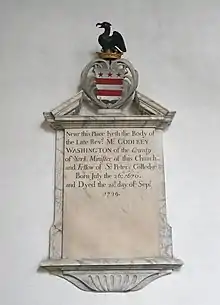 Near this Place lyeth the Body of
the Late Revd. Mr. GODFREY
WASHINGTON of the County
of York Minister of this Church
and Fellow of St. Peter's Colledge
Born July the 26th. 1670.
and Dyed the 28th. day of Sept.
1729.